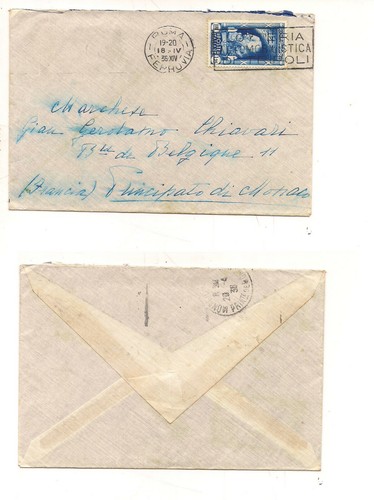 ROMA
19-20
18·IV
36 XIV
FERROVIA
RIA
ISTICA
OLI
Marchese
Gian Gerolamo Chiavari
Bd de Belgique 11
(Francia) Principato di Monaco
20 -4
36